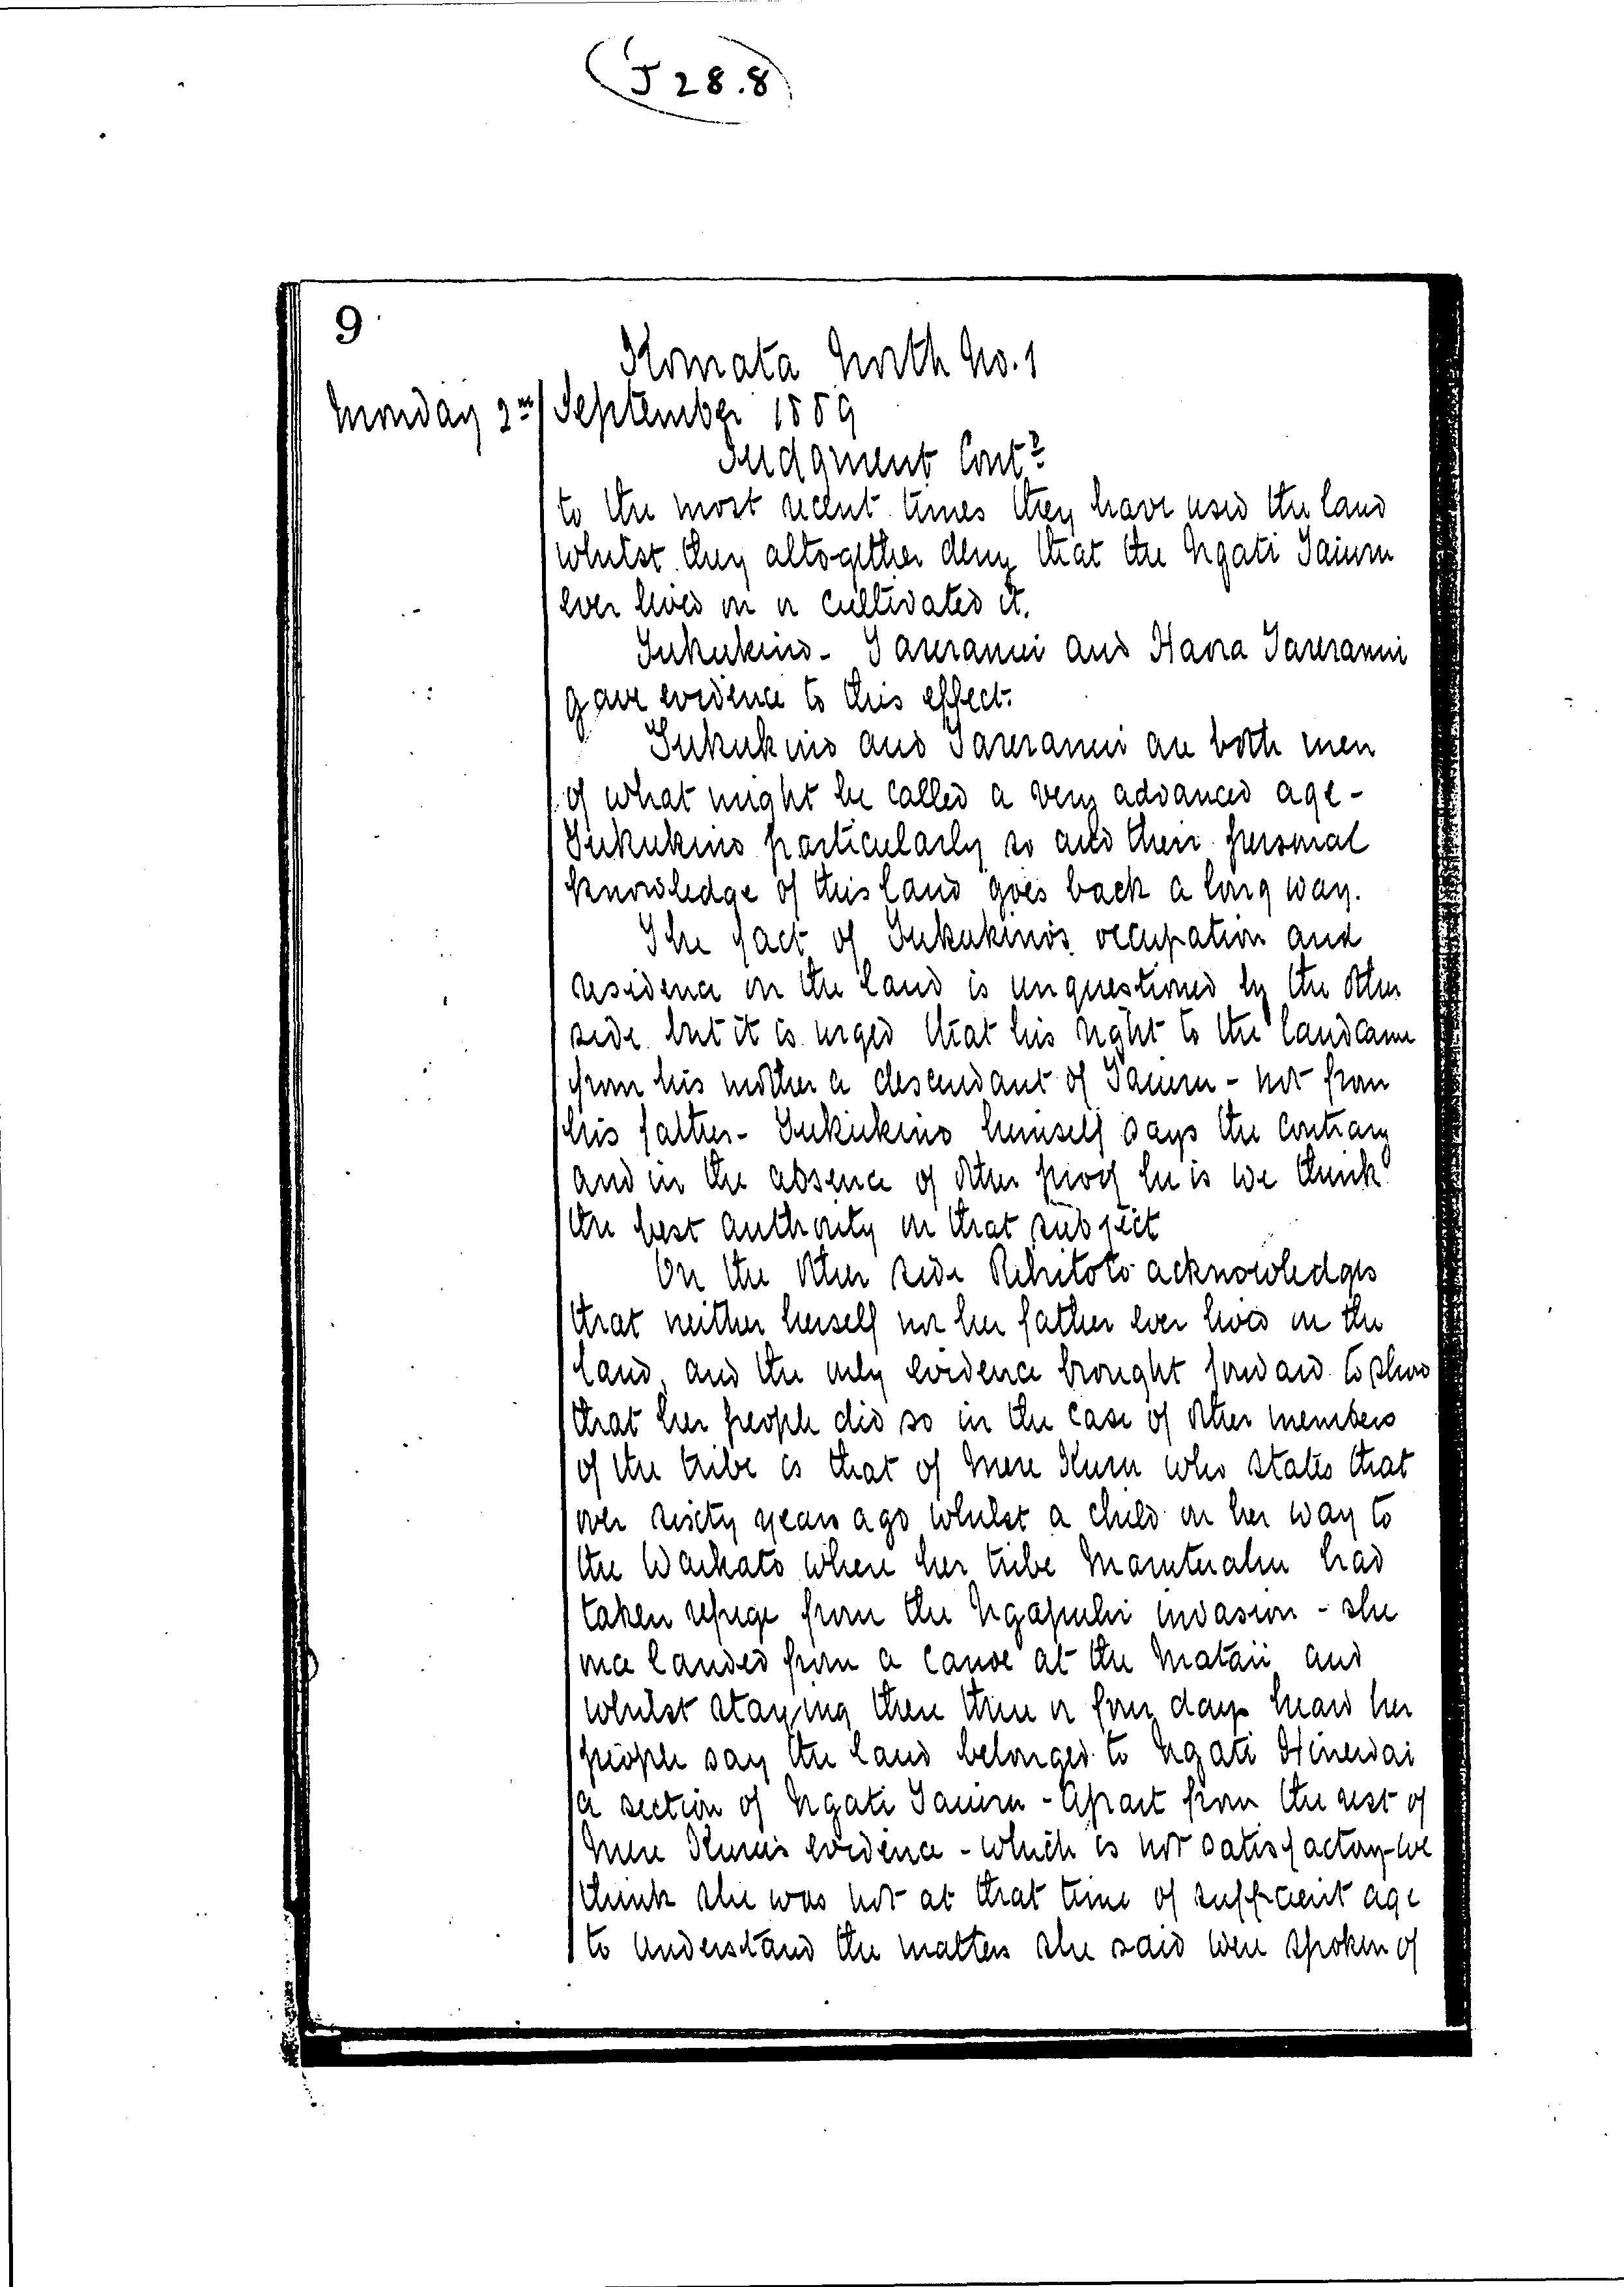 J 28.8
9
Komata North No. 1
Monday 2nd September 1889
Judgment Contd
to the most recent times they have used the land
whilst they altogether deny that the Ngati Taiuru
ever lived on or cultivated it.
Tukukino - Tareranui and Haora Tareranui
gave evidence to this effect.
Tukukino and Tareranui are both men
of what might be called a very advanced age -
Tukukino particularly so and their personal
knowledge of this land goes back a long way.
The fact of Tukukino's occupation and
residence on the land is unquestioned by the other
side but it is urged that his right to the land came
from his mother a descendant of Taiuru - not from
his father - Tukukino himself says the contrary
and in the absence of other proof he is we think
the best authority on that subject
On the other side Rihitoto acknowledges
that neither herself nor her father ever lived on the
land, and the only evidence brought forward to show
that her people did so in the case of other members
of the tribe is that of Mere Kuru who states that
over sixty years ago whilst a child on her way to
the Waikato where her tribe Marutuahu had
taken refuge from the Ngapuhi invasion - she
once landed from a canoe at the Mataii and
whilst staying there three or four days heard her
people say the land belonged to Ngati Hinewai
a section of Ngati Taiuru - Apart from the rest of
Mere Kuru's evidence - which is not satisfactory - we
think she was not at that time of sufficient age
to understand the matters she said were spoken of